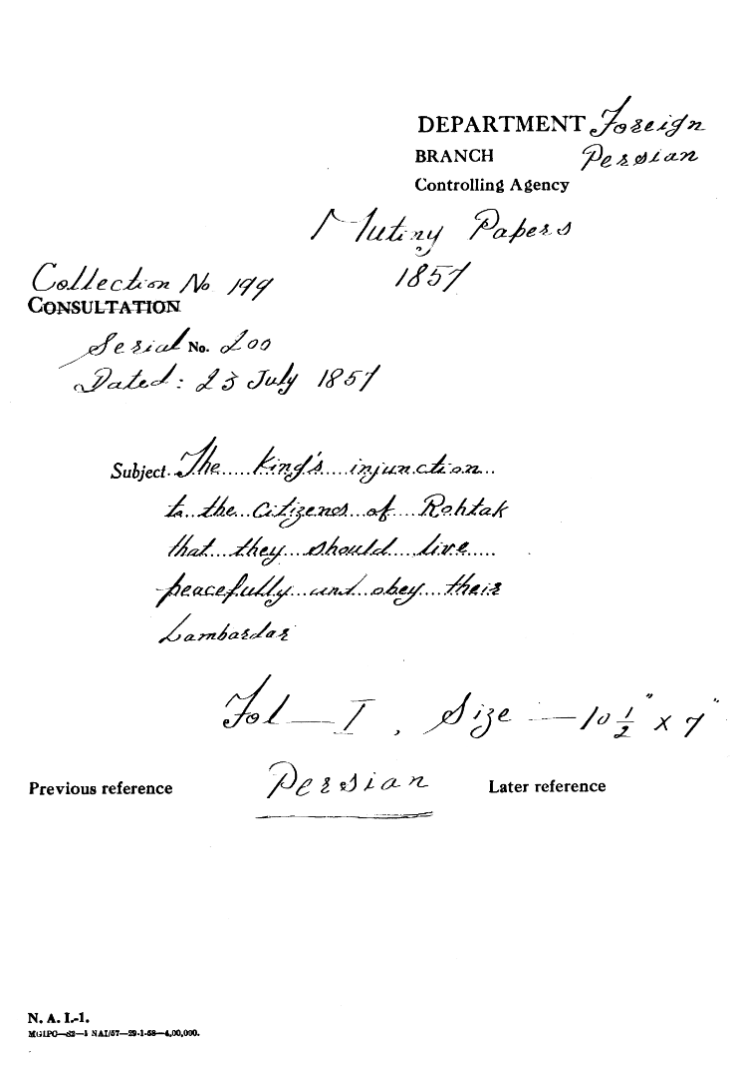 DEPARTMENT Foreign
BRANCH Persian
Controlling Agency
Mutiny Papers
1857
Collection No 199
CONSULTATION
Serial No. 200
Dated: 23 July 1857
Subject. The King's injunction
to the citizens of Rohtak
that they should live
peacefully and obey their
Lambardar
Fol — I, Size — 10 1/2" x 7"
Previous reference Persian Later reference
N. A. I.-1.
MGIPC—S2—5 NAI/57—29-1-58—4,00,000.